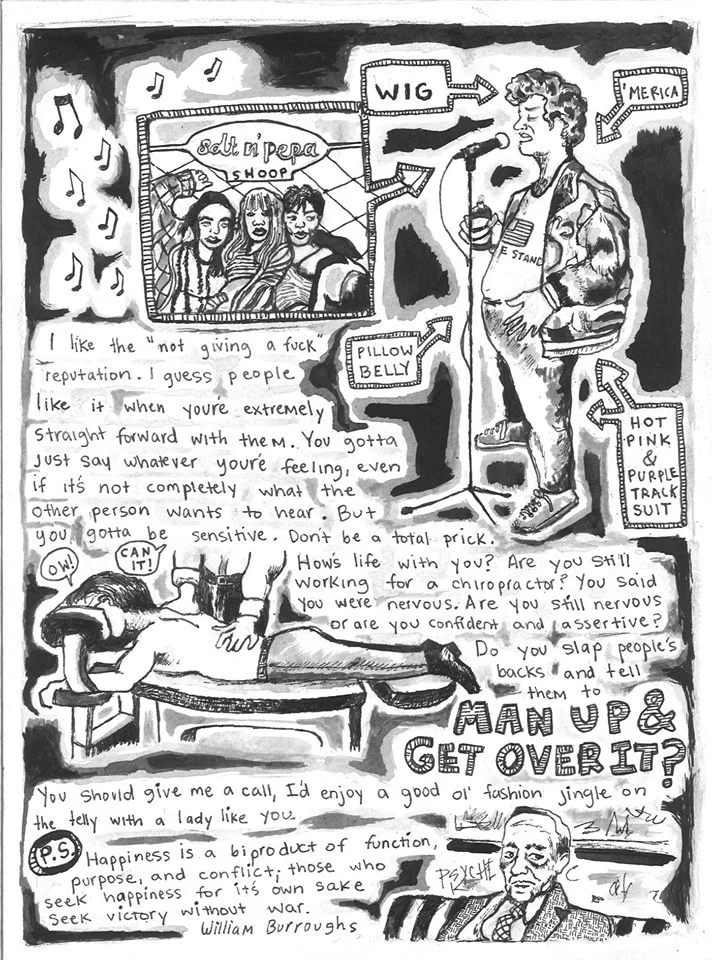 WIG
'MERICA
salt n' pepa
SHOOP
E STAND
PILLOW
BELLY
HOT
PINK
&
PURPLE
TRACK
SUIT
I like the "not giving a fuck"
reputation. I guess people
like it when you're extremely
straight forward with them. You gotta
just say whatever you're feeling, even
if it's not completely what the
other person wants to hear. But
you gotta be sensitive. Don't be a total prick.
OW!
CAN
IT!
How's life with you? Are you still
working for a chiropractor? You said
you were nervous. Are you still nervous
or are you confident and assertive?
Do you slap people's
backs and tell
them to
MAN UP &
GET OVER IT?
You should give me a call, I'd enjoy a good ol' fashion jingle on
the telly with a lady like you.
P.S.
Happiness is a biproduct of function,
purpose, and conflict; those who
seek happiness for it's own sake
seek victory without war.
William Burroughs
PSYCHE